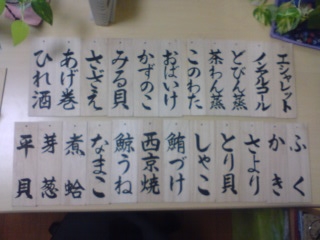 エシャレット
ノンアルコール
どびん蒸
茶わん蒸
このわた
おばいけ
かずのこ
みる貝
さざえ
あげ巻
ひれ酒
ふく
かき
さより
とり貝
しゃこ
鮪づけ
西京焼
鯨うね
なまこ
煮蛤
芽葱
平貝